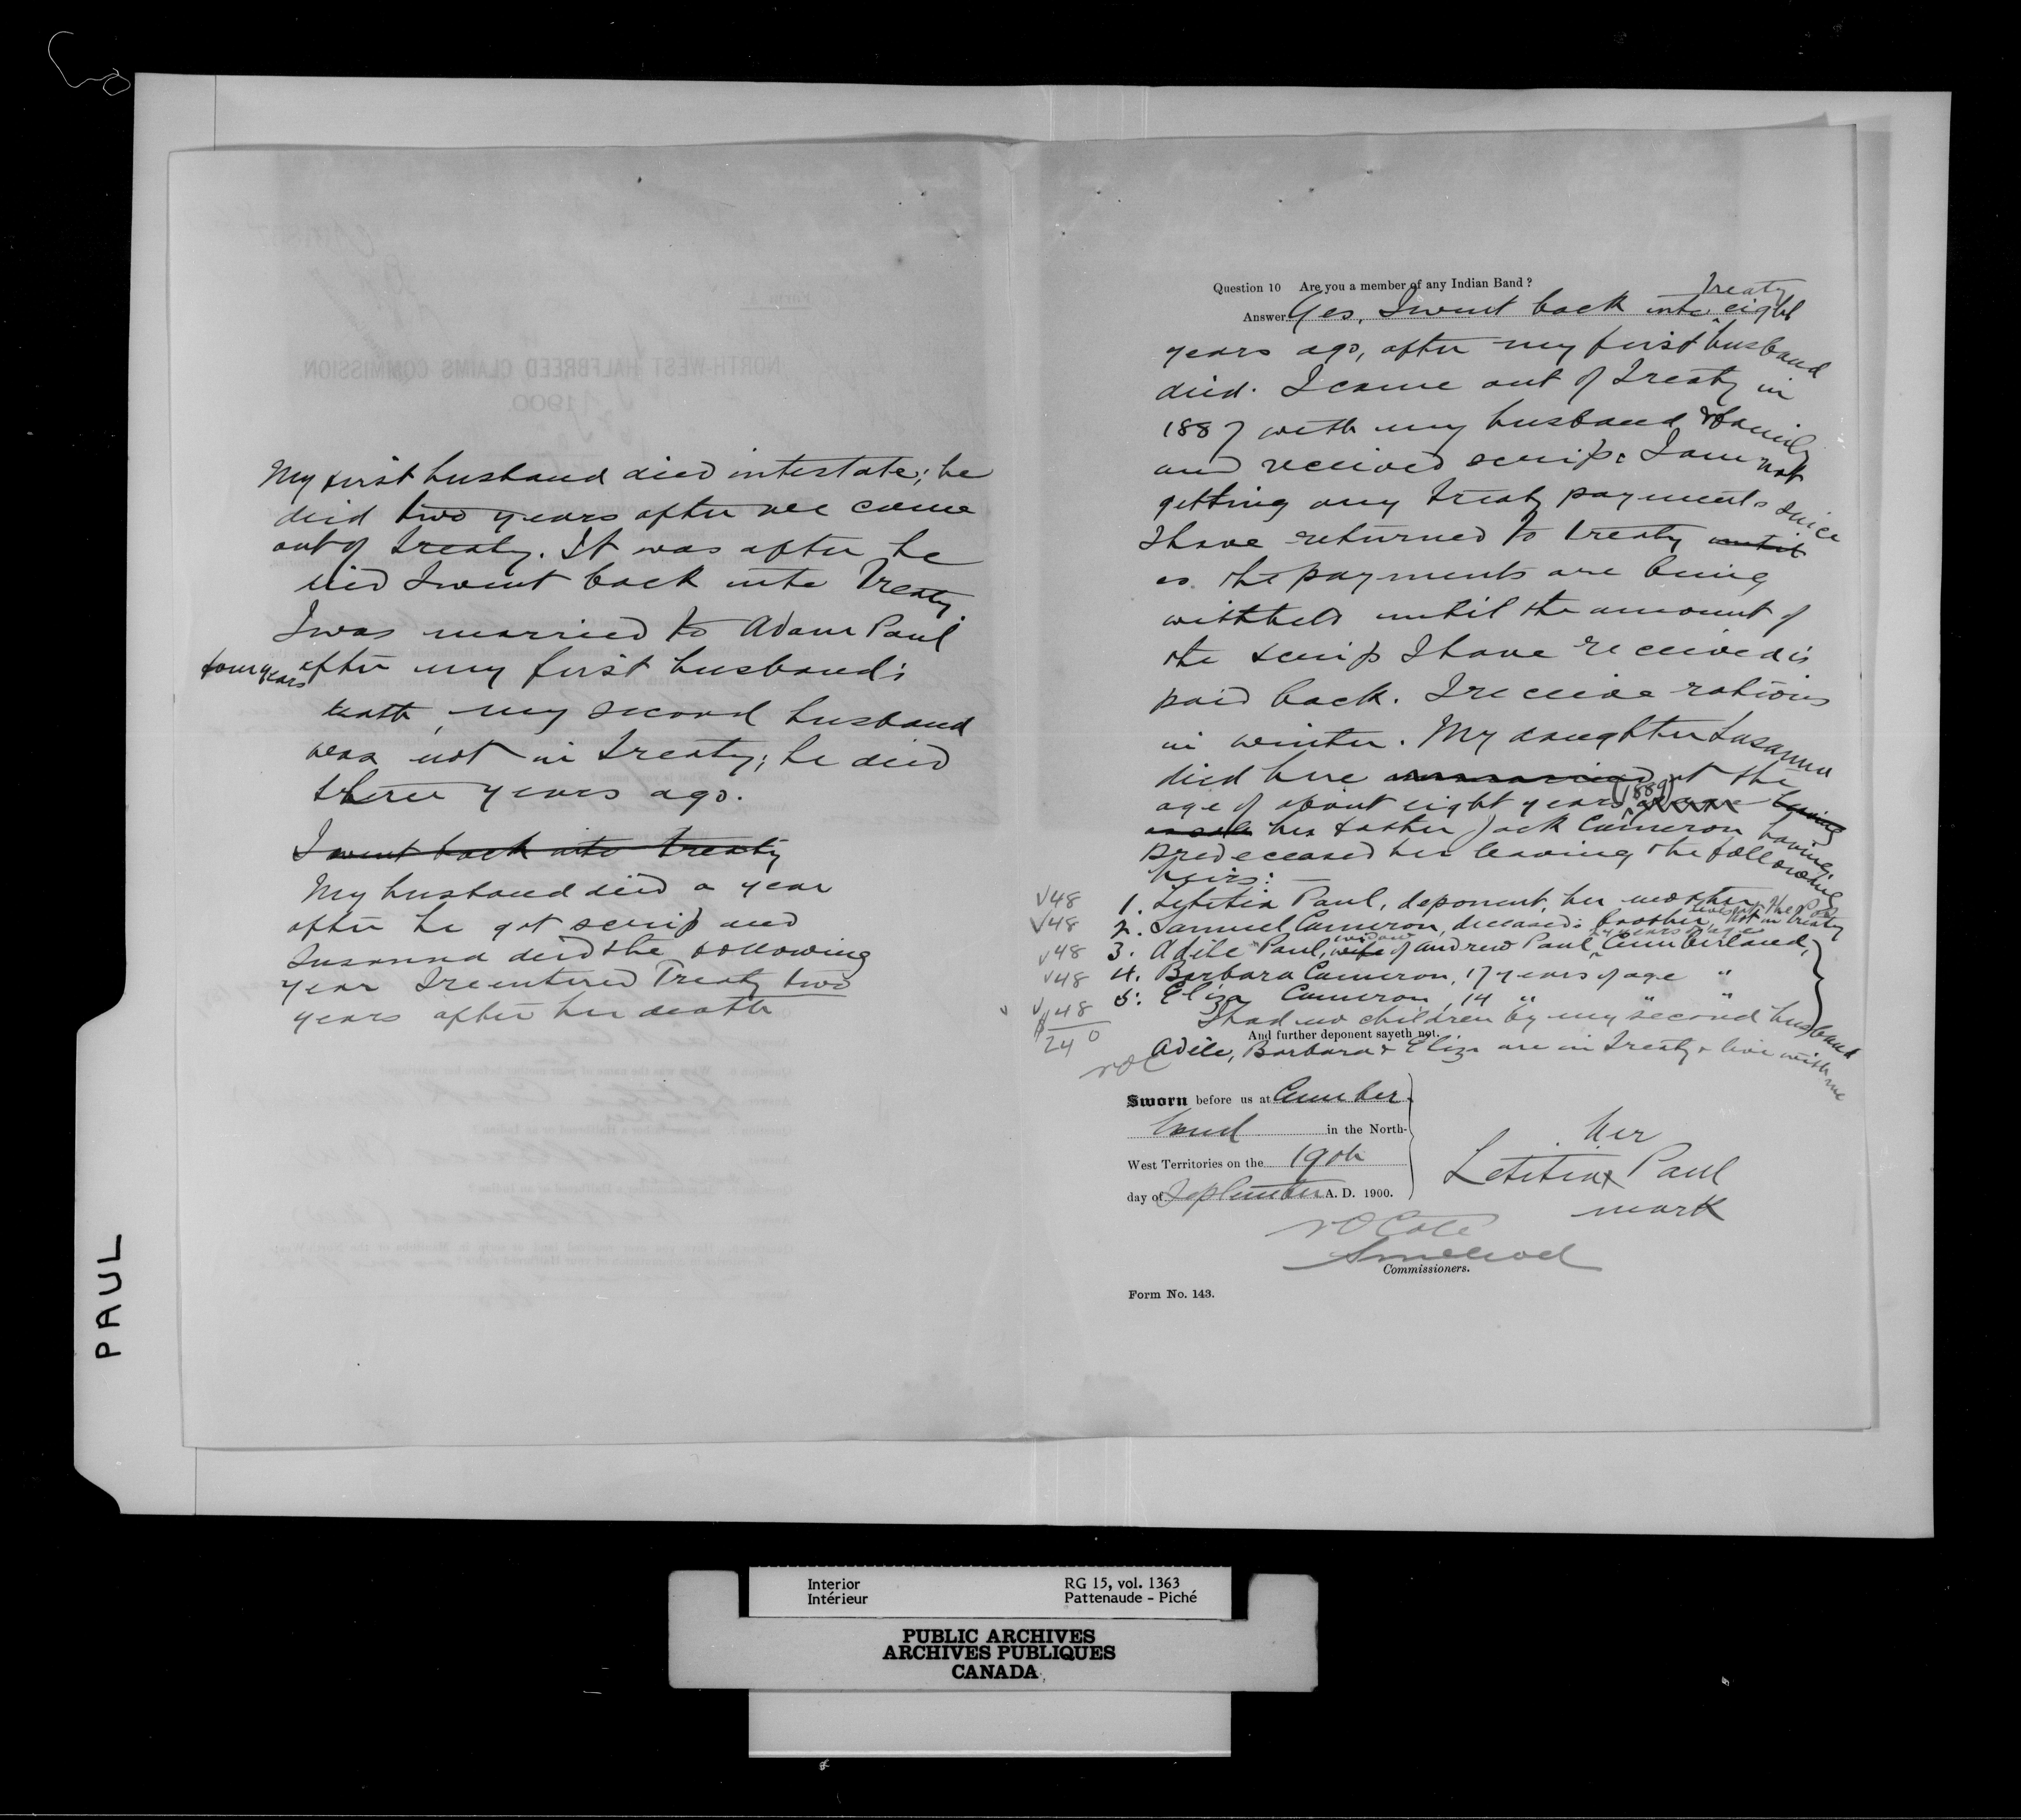 My first husband died intestate; he
died two years after we came
out of treaty. It was after he
died I went back into Treaty
I was married to Adam Paul
four years after my first husband's
death, my second husband
was not in treaty; he died
three years ago.
I went back into treaty
My husband died a year
after he got scrip and
Susanna died the following
year I reentered Treaty two
years after her death
PAUL
Question 10 Are you a member of any Indian Band?
Answer Yes, I went back into Treaty eight
years ago, after my first husband
died. I came out of Treaty in
1887 with my husband & family
and received scrip. I am not
getting any treaty payments since
I have returned to treaty until
as the payments are being
withheld until the amount of
the scrip I have received is
paid back. I receive rations
in winter. My daughter Susanna
died here unmarried at the
age of about eight years (1889) leaving
her father Jack Cameron having
predeceased her leaving the following
heirs:
√48 1. Letitia Paul, deponent, her mother
√48 2. Samuel Cameron, deceased's brother, lives at the Pas not in treaty
√48 3. Adile Paul, wife widow of Andrew Paul, years of age Cumberland,
√48 4. Barbara Cameron, 17 years of age "
√48 5. Eliza Cameron, 14 " " "
$240
I had no children by my second husband
And further deponent sayeth not.
Adile, Barbara & Eliza are in Treaty & live with me
NOC
Sworn before us at Cumber
land in the North-
West Territories on the 19th
day of September A. D. 1900.
her
Letitia x Paul
mark
NO Coté
Commissioners.
Form No. 143.
NORTH-WEST HALFBREED CLAIMS COMMISSION
1900
Interior RG 15, vol. 1363
Intérieur Pattenaude - Piché
PUBLIC ARCHIVES
ARCHIVES PUBLIQUES
CANADA